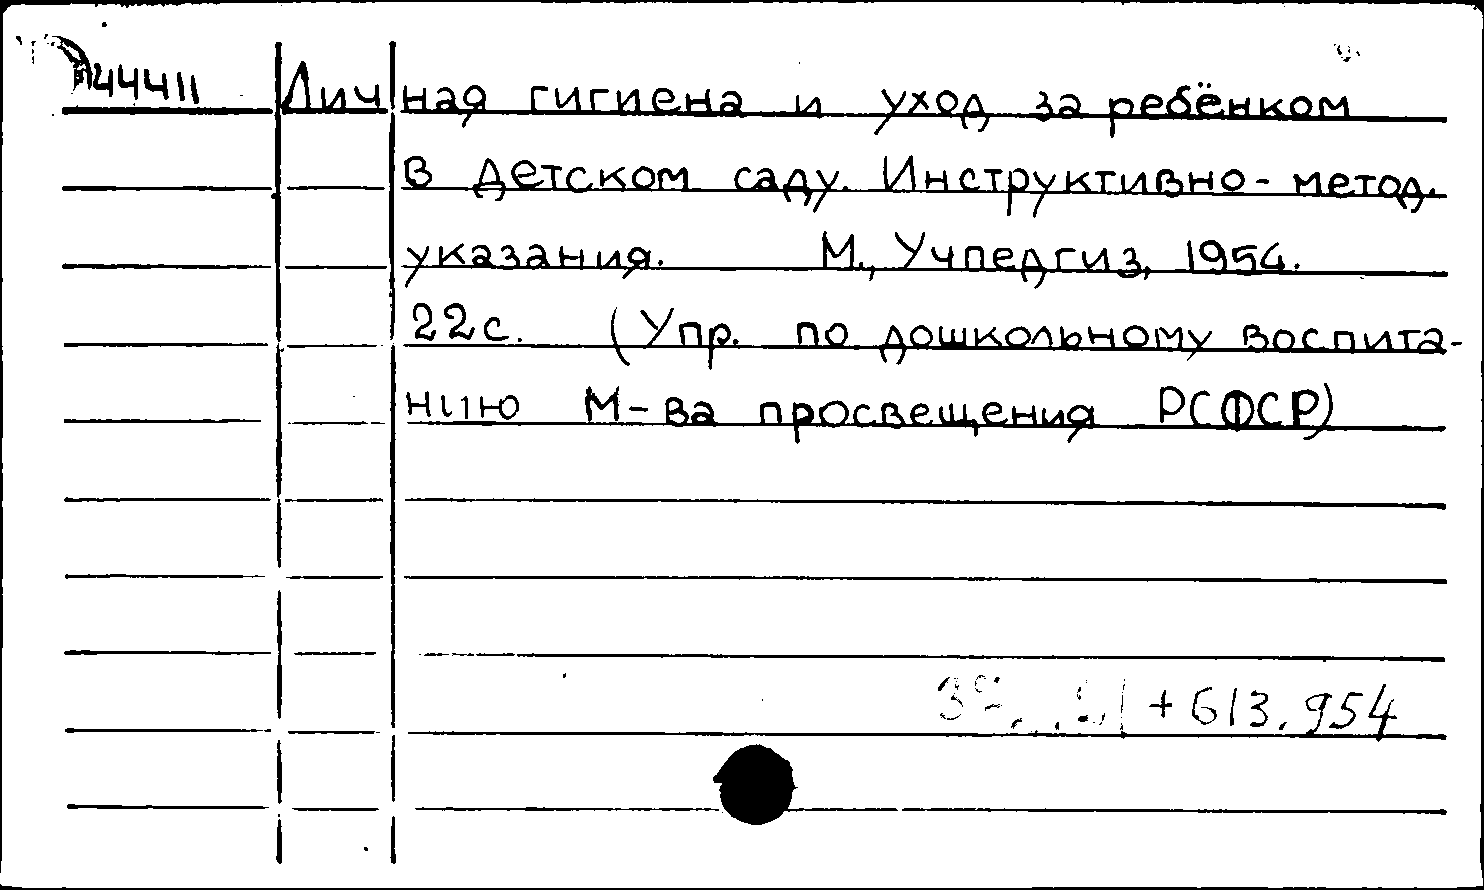 44411 Личная гигиена и уход за ребёнком
в детском саду. Инструктивно-метод.
указания. М., Учпедгиз, 1954.
22с. (Упр. по дошкольному воспита-
нию М-ва просвещения РСФСР)
+ 613.954